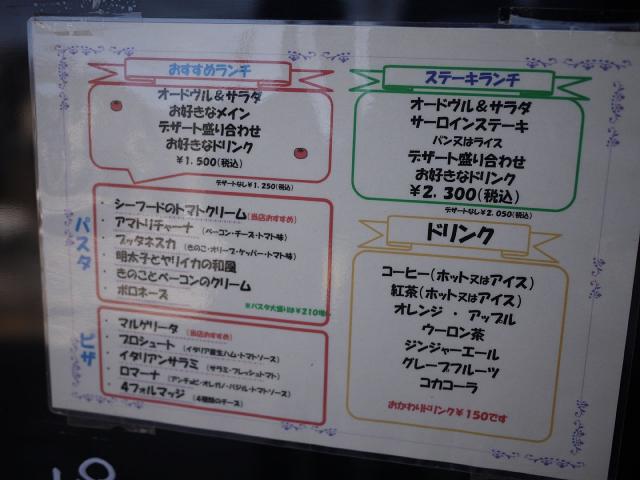 おすすめランチ
オードヴル＆サラダ
お好きなメイン
デザート盛り合わせ
お好きなドリンク
￥1.500（税込）
デザートなし￥1.250（税込）
パスタ
・シーフードのトマトクリーム（当店おすすめ）
・アマトリチャーナ（ベーコン・チーズ・トマト味）
・プッタネスカ（きのこ・オリーブ・ケッパー・トマト味）
・明太子とヤリイカの和風
・きのことベーコンのクリーム
・ボロネーズ
※パスタ大盛りは￥210増し
ピザ
・マルゲリータ（当店おすすめ）
・プロシュート（イタリア産生ハム・トマトソース）
・イタリアンサラミ（サラミ・フレッシュトマト）
・ロマーナ（アンチョビ・オレガノ・バジル・トマトソース）
・4フォルマッジ（4種類のチーズ）
ステーキランチ
オードヴル＆サラダ
サーロインステーキ
パン又はライス
デザート盛り合わせ
お好きなドリンク
￥2.300（税込）
デザートなし￥2.050（税込）
ドリンク
コーヒー（ホット又はアイス）
紅茶（ホット又はアイス）
オレンジ ・ アップル
ウーロン茶
ジンジャーエール
グレープフルーツ
コカコーラ
おかわりドリンク￥150です